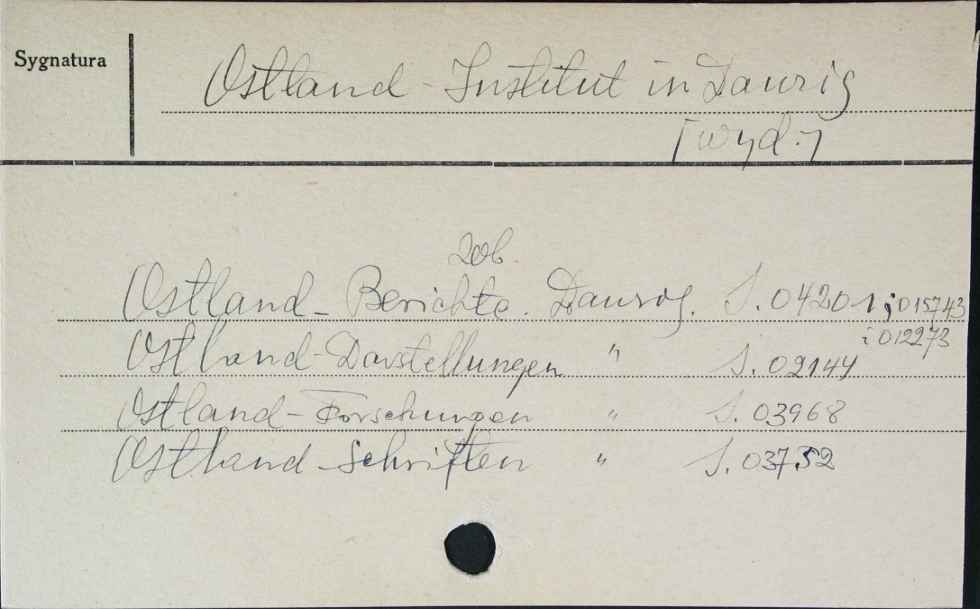 Sygnatura
Ostland-Institut in Danzig
[wyd.]
Zob.
Ostland-Berichte. Danzig. S. 04201; 015743
i 012273
Ostland-Darstellungen " S. 02144
Ostland-Forschungen " S. 03968
Ostland-Schriften " S. 03752